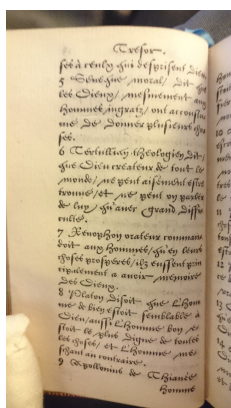 Tresor.
ses à ceulx qui desprisent Dieu
5 Seneque moral, dit que
les Dieux, mesmement aux
hommes ingratz, ont accoustu
me de donner plusieurs cho
ses.
6 Tertullien theologien dit,
que Dieu createur de tout le
monde, ne peut aisement estre
trouvé, et ne peut on parler
de luy, qu'avec grand diffi
culté.
7 Xenophon orateur comman
doit aux hommes, qu'en leurs
choses prosperes, ilz eussent prin
cipalement a avoir memoire
des Dieux.
8 Platon disoit que l'hom
me de bien estoit semblable à
Dieu, aussi l'homme bon e
stoit le plus digne de toutes
les choses, et l'homme mes
chant au contraire.
9 Apollonius de Thianée
homme